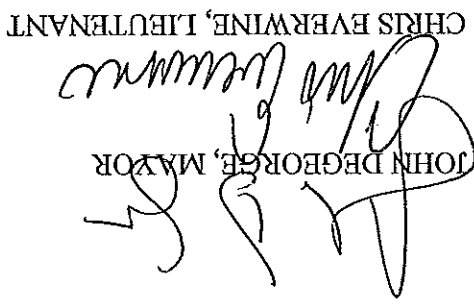 JOHN DEGEORGE, MAYOR
CHRIS EVERWINE, LIEUTENANT